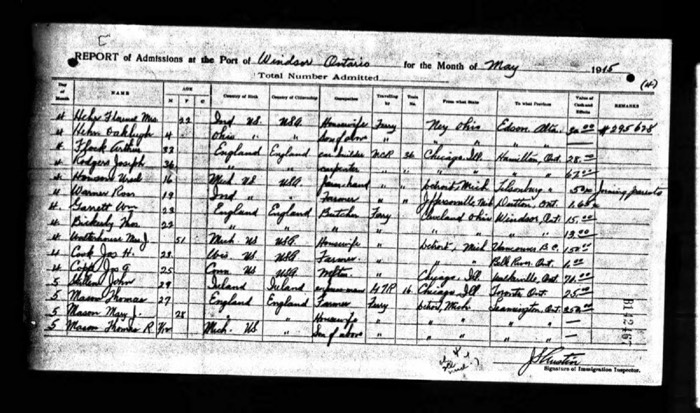 REPORT of Admissions at the Port of Windsor Ontario for the Month of May 1915
Total Number Admitted
Day of Month NAME AGE M F C Country of Birth Country of Citizenship Occupation Travelling by Train No. From what State To what Province Value of Cash and Effects REMARKS
4 Hehr Florence Mrs 22 Ind US USA Housewife Ferry Ney Ohio Edson Alta. #295628
4 Hehr Oakleigh 4 Ohio " " Son of above " " " " " —
4 Flook Arthur 32 England England car builder MCR 36 Chicago, Ill. Hamilton, Ont. 28.00
4 Rodgers Joseph 36 " " carpenter " " " " " " 67.00
4 16 Mich US USA farm hand " " Detroit, Mich " 5.00 Joining parents
4 Warner Ross 19 Ind " " Farmer " " Jeffersonville Ind Dutton, Ont.
4 Garrett Wm 23 England England Butcher Ferry Cleveland Ohio Windsor, Ont. 15.00
4 Bickerby Thos 22 " " " " " " " "
4 Waterhouse Mrs J. 51 Mich US USA Housewife " Detroit, Mich Vancouver B.C. 150.00
4 Cook Jos H. 28 US USA Farmer " " " Belle River, Ont.
4 Jos 25 Conn US USA " Chicago, Ill Ont.
5 John 29 Ireland Ireland GTR 16 Chicago Ill Toronto Ont. 25.00
5 Mason Thomas 27 England England Farmer Ferry Detroit, Mich Leamington, Ont.
5 Mason Mary J. 28 " " Housewife " " " " " —
5 Mason Thomas R. Mich. US " Son of above " " " " " —
B14246
Signature of Immigration Inspector.